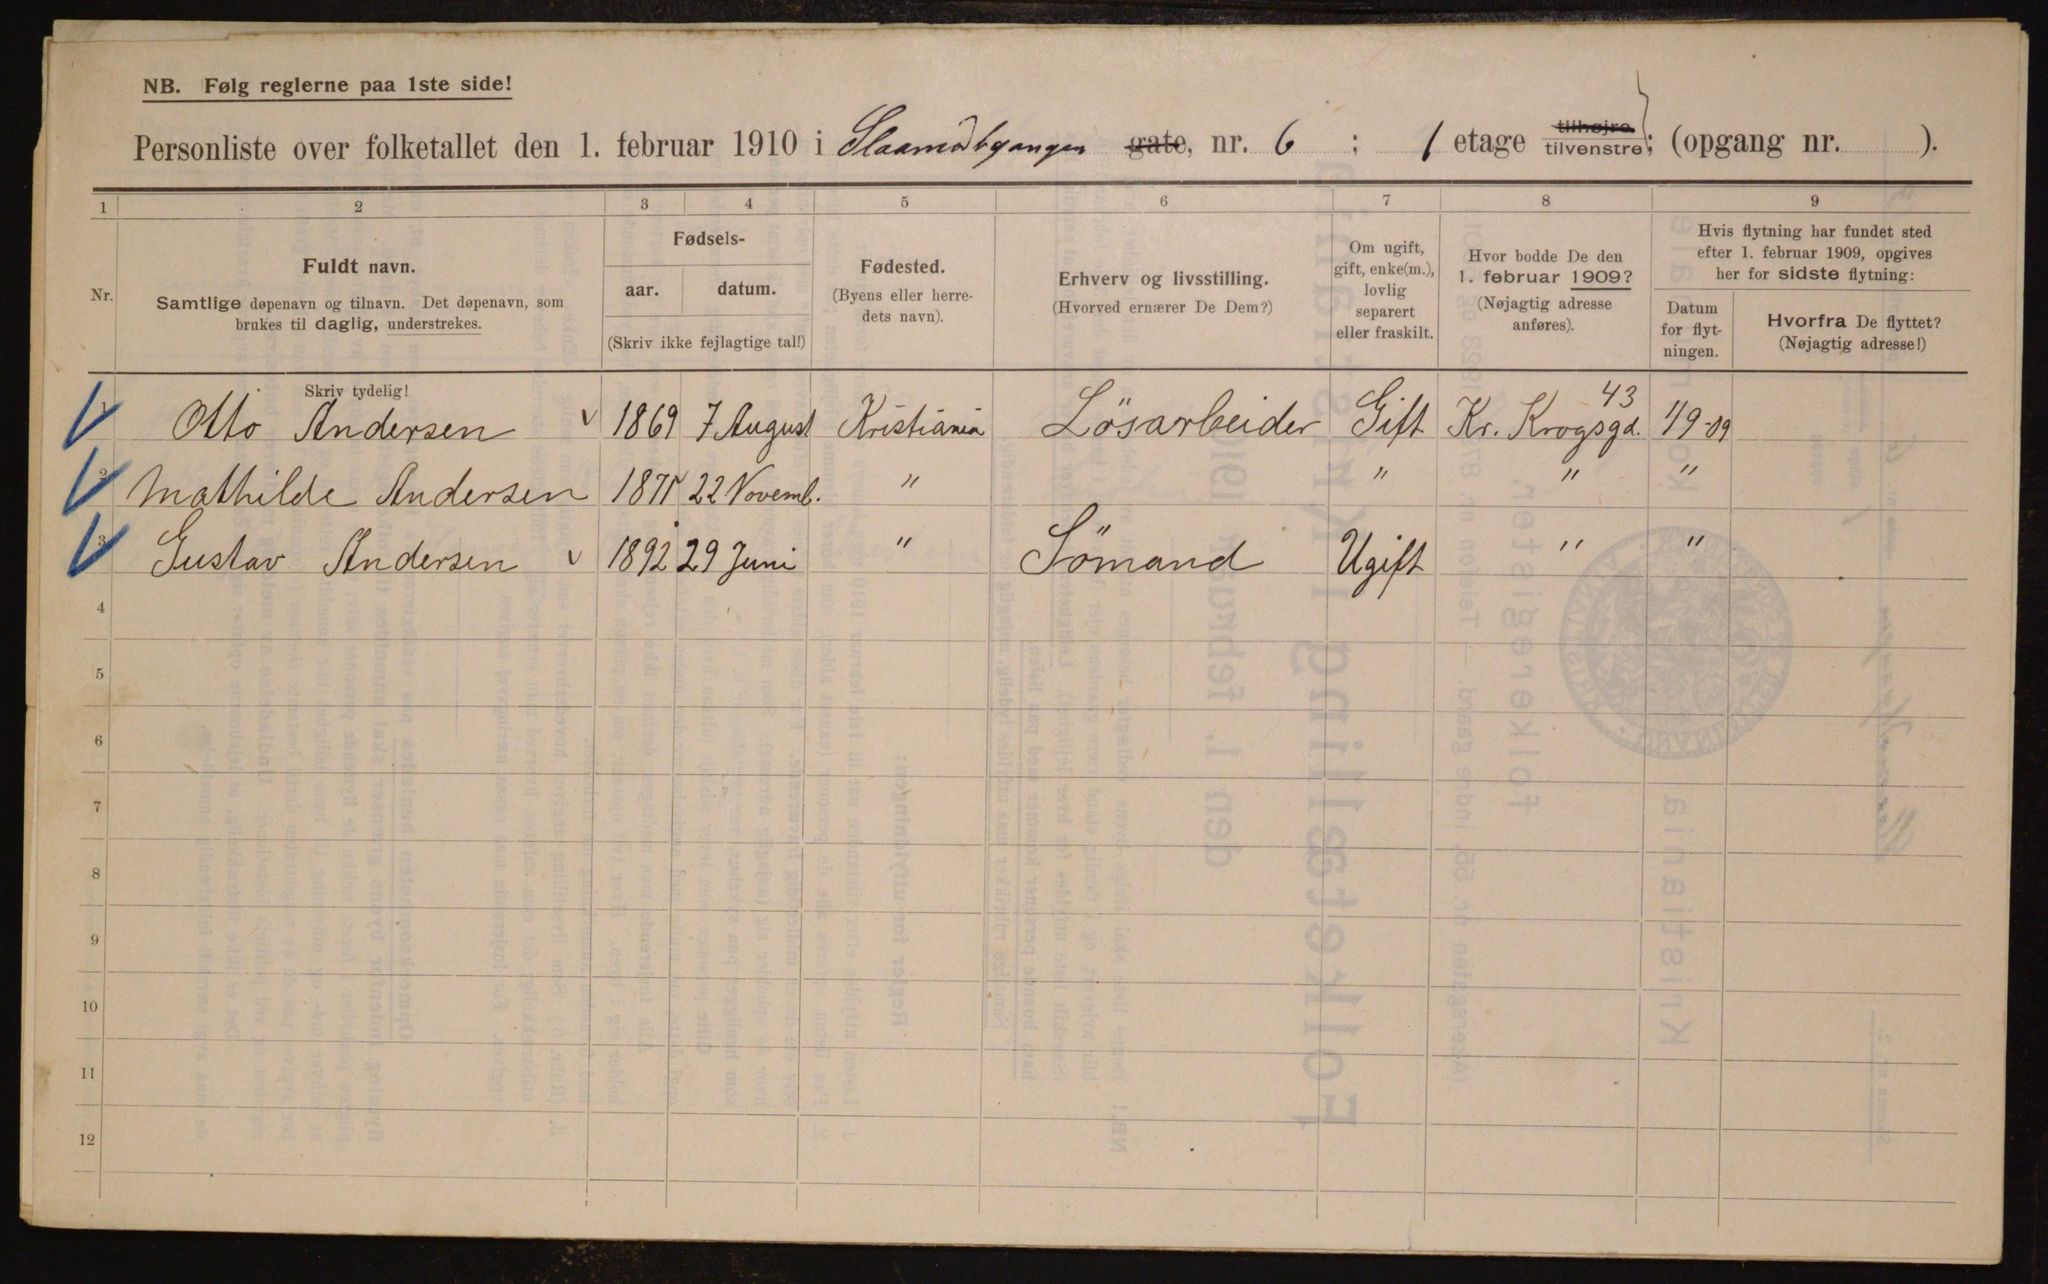 NB. Følg reglerne paa 1ste side!
Personliste over folketallet den 1. februar 1910 i gate, nr. 6 ; 1 etage tilhøjre tilvenstre ; (opgang nr. ).
1 2 3 4 5 6 7 8 9
Nr.
Fuldt navn.
Samtlige døpenavn og tilnavn. Det døpenavn, som
brukes til daglig, understrekes.
Fødsels-
aar. datum.
(Skriv ikke fejlagtige tal!)
Fødested.
(Byens eller herre-
dets navn).
Erhverv og livsstilling.
(Hvorved ernærer De Dem?)
Om ugift,
gift, enke(m.),
lovlig
separert
eller fraskilt.
Hvor bodde De den
1. februar 1909?
(Nøjagtig adresse
anføres).
Hvis flytning har fundet sted
efter 1. februar 1909, opgives
her for sidste flytning:
Datum
for flyt-
ningen.
Hvorfra De flyttet?
(Nøjagtig adresse!)
Skriv tydelig!
1 Otto Andersen 1869 7 August Kristiania Lösarbeider Gift Kr. Krogsgd. 43 1/9-09
2 Mathilde Andersen 1871 22 Novemb. " " " "
3 Gustav Andersen 1892 29 Juni " Sömand Ugift " "
4
5
6
7
8
9
10
11
12